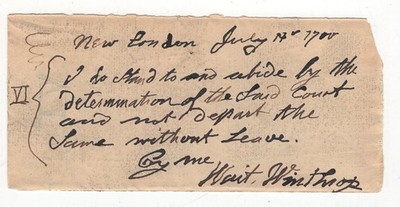 New London July 17º 1700
VI
I do stand to and abide by the
determination of the Said Court
and not depart the
Same without Leave.
By me
Wait Winthrop